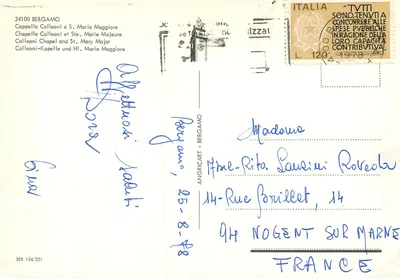 24100 BERGAMO
Cappella Colleoni e S. Maria Maggiore
Chapelle Colleoni et Ste. Marie Majeure
Colleoni Chapel and St. Mary Major
Colleoni-Kapelle und Hl. Maria Maggiore
Affettuosi saluti
Dora
Gina
Bergamo, 25-8-78
ANGERICART - BERGAMO
BER 124/331
ITALIA
TUTTI
SONO TENUTI A
CONCORRERE ALLE
SPESE PUBBLICHE
IN RAGIONE DELLA
LORO CAPACITÀ
CONTRIBUTIVA
L. 120
1978
Madame
Mme-Rita Lanzini Roveda
14-Rue Brillet, 14
94 NOGENT SUR MARNE
FRANCE